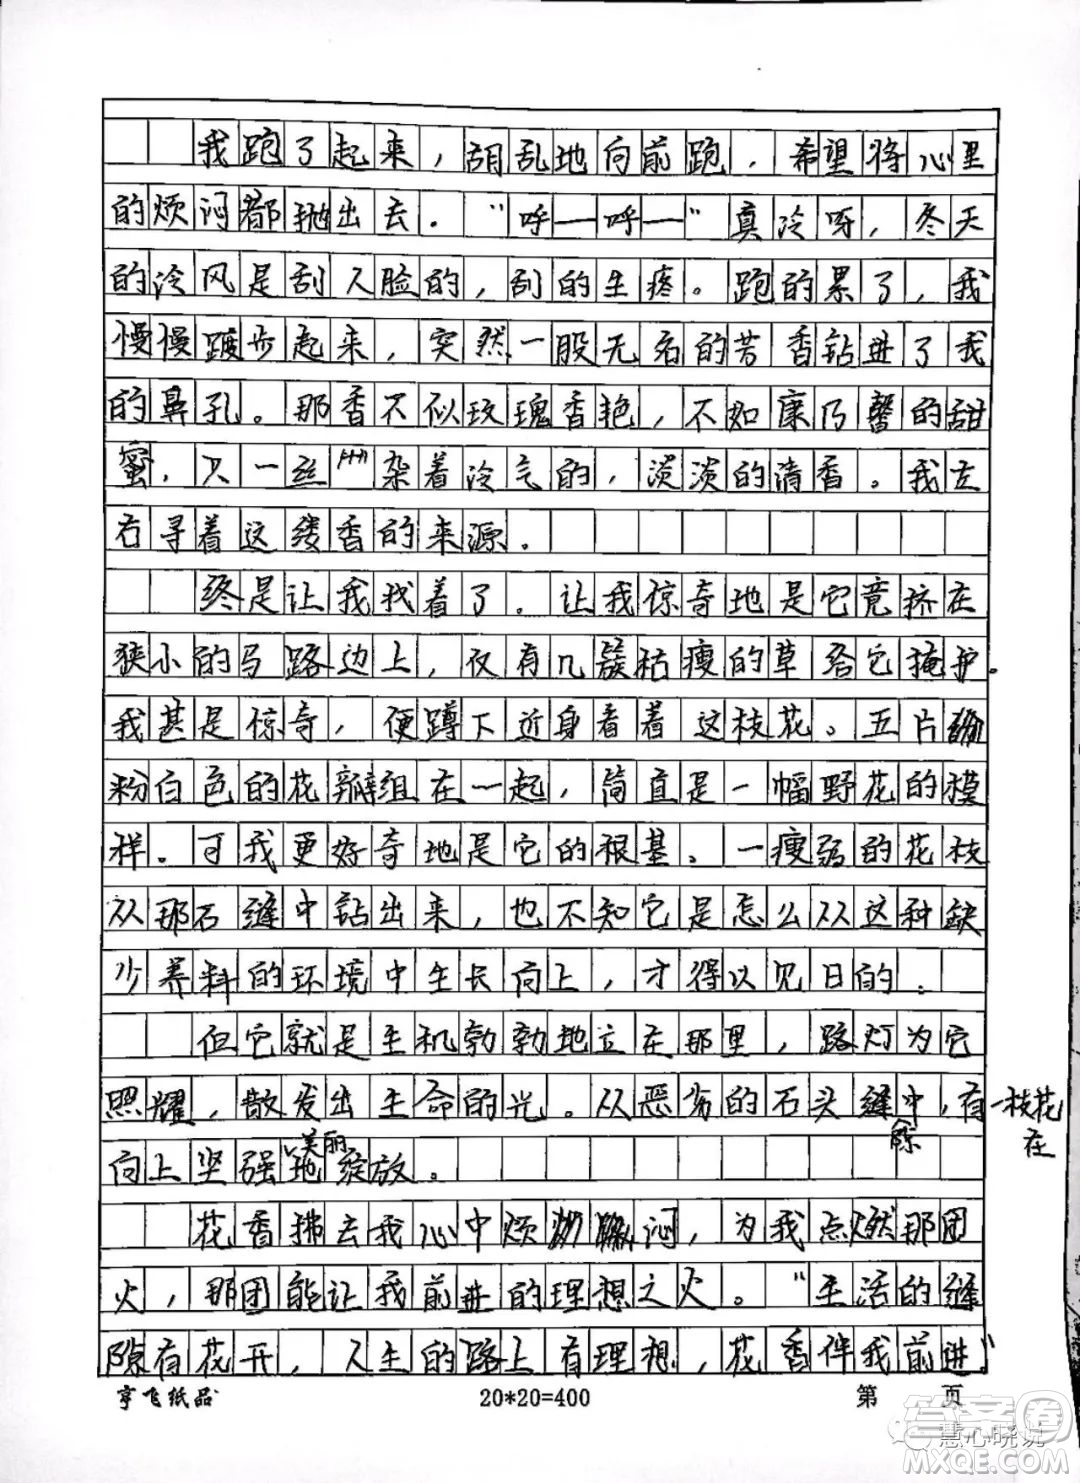 我跑了起来，胡乱地向前跑，希望将心里
的烦闷都抛出去。“呼一呼一”真冷呀，冬天
的冷风是刮人脸的，刮的生疼。跑的累了，我
慢慢踱步起来，突然一股无名的芳香钻进了我
的鼻孔。那香不似玫瑰香艳，不如康乃馨的甜
蜜，只一丝杂着冷气的，淡淡的清香。我左
右寻着这缕香的来源。
终是让我找着了。让我惊奇地是它竟挤在
狭小的马路边上，仅有几簇枯瘦的草给它掩护。
我甚是惊奇，便蹲下近身看着这枝花。五片
粉白色的花瓣组在一起，简直是一幅野花的模
样。可我更好奇地是它的根基。一瘦弱的花枝
从那石缝中钻出来，也不知它是怎么从这种缺
少养料的环境中生长向上，才得以见日的。
但它就是生机勃勃地立在那里，路灯为它
照耀，散发出生命的光。从恶劣的石头缝隙中，有一枝花在
向上坚强美丽地绽放。
花香拂去我心中烦闷，为我点燃那团
火，那团能让我前进的理想之火。“生活的缝
隙有花开，人生的路上有理想，花香伴我前进。”
亨飞纸品 20*20=400 第 页
答案圈
慧心晓说
MXQE.COM